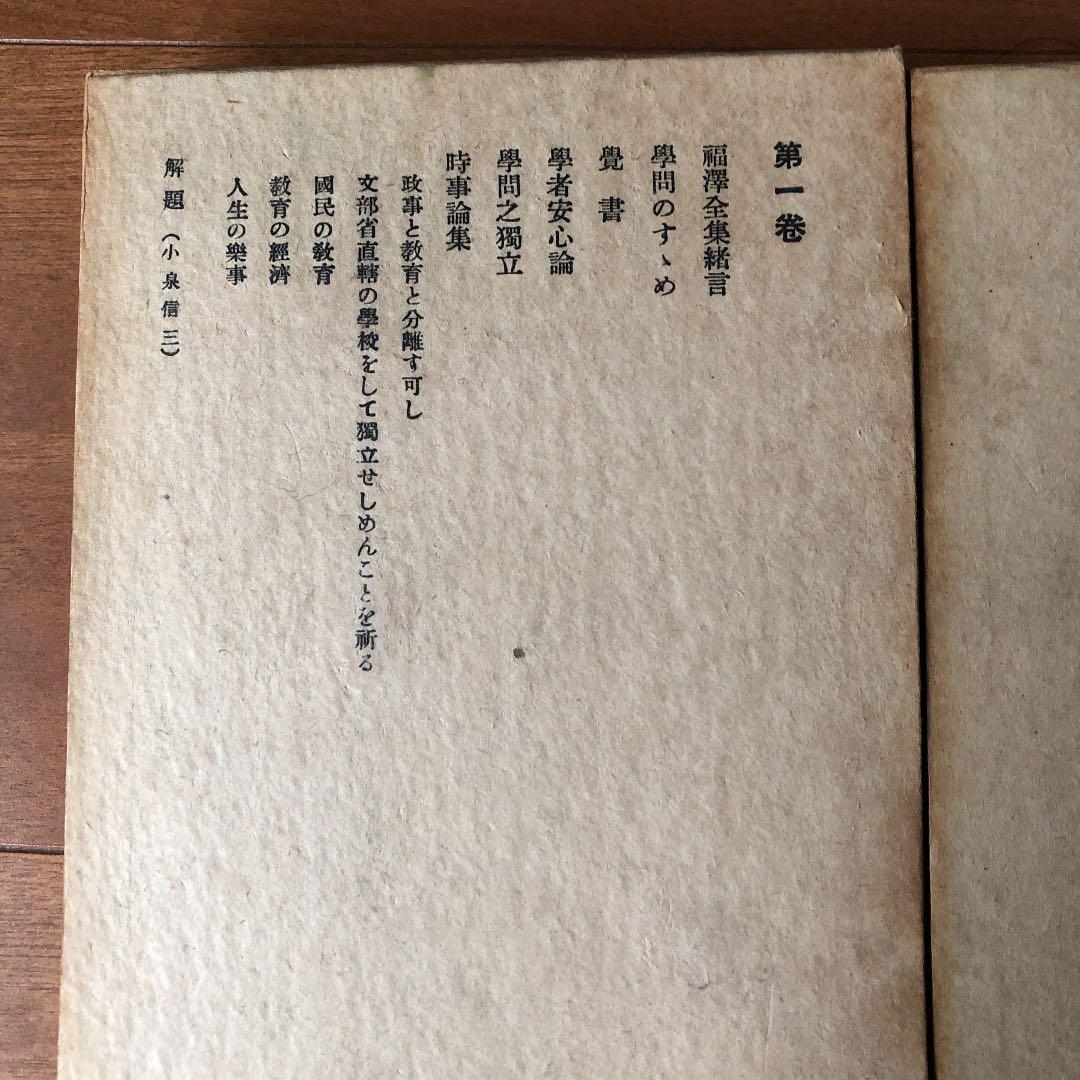 第一卷
福澤全集緒言
學問のすゝめ
覺書
學者安心論
學問之獨立
時事論集
政事と教育と分離す可し
文部省直轄の學校をして獨立せしめんことを祈る
國民の教育
教育の經濟
人生の樂事
解題（小泉信三）